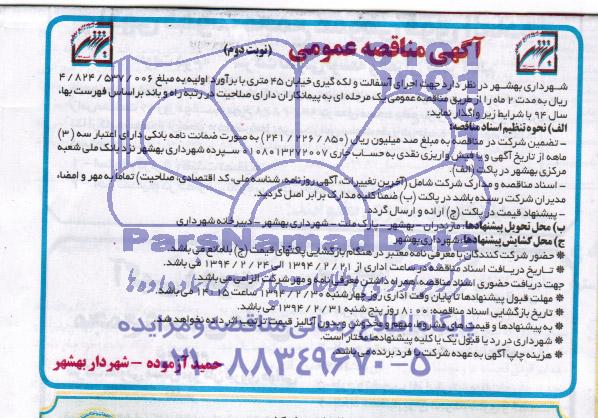 آگهی مناقصه عمومی (نوبت دوم)
شهرداری بهشهر در نظر دارد جهت اجرای آسفالت و لکه گیری خیابان ۴۵ متری با برآورد اولیه به مبلغ ۴/۸۲۴/۵۳۷/۰۰۶
ریال به مدت ۲ ماه را از طریق مناقصه عمومی یک مرحله ای به پیمانکاران دارای صلاحیت در رتبه راه و باند براساس فهرست بهاء
سال ۹۴ با شرایط زیر واگذار نماید:
الف) نحوه تنظیم اسناد مناقصه:
- تضمین شرکت در مناقصه به مبلغ صد میلیون ریال (۲۴۱/۲۲۶/۸۵۰) به صورت ضمانت نامه بانکی دارای اعتبار سه (۳)
ماهه از تاریخ آگهی و یا فیش واریزی نقدی به حساب جاری ۰۱۰۸۰۱۳۲۷۲۰۰۷ سپرده شهرداری بهشهر نزد بانک ملی شعبه
مرکزی بهشهر در پاکت (الف).
- اسناد مناقصه و مدارک شرکت شامل (آخرین تغییرات، آگهی روزنامه، شناسه ملی، کد اقتصادی، صلاحیت) تماما به مهر و امضاء
مدیران شرکت رسیده باشد در پاکت (ب) ضمنا کلیه مدارک برابر اصل گردید.
- پیشنهاد قیمت در پاکت (ج) ارائه و ارسال گردد.
ب) محل تحویل پیشنهادها: مازندران - بهشهر - پارک ملت - شهرداری بهشهر - دبیرخانه شهرداری
ج) محل گشایش پیشنهادها: شهرداری بهشهر
* حضور شرکت کنندگان با معرفی نامه معتبر در هنگام بازگشایی پاکتهای قیمت (ج) بلامانع می باشد.
* تاریخ دریافت اسناد مناقصه در ساعت اداری از ۱۳۹۴/۲/۲۱ الی ۱۳۹۴/۲/۲۴ می باشد.
جهت دریافت حضوری اسناد مناقصه، همراه داشتن معرفی نامه و مهر شرکت الزامی می باشد.
* مهلت قبول پیشنهادها تا پایان وقت اداری روز چهارشنبه ۱۳۹۴/۲/۳۰ ساعت ۱۴:۱۵ می باشد.
* تاریخ بازگشایی اسناد مناقصه: ۸:۰۰ روز پنج شنبه ۱۳۹۴/۲/۳۱ می باشد.
* به پیشنهادها و قیمت های مشروط، مبهم و مخدوش و بدون آنالیز قیمت ترتیب اثر داده نخواهد شد.
* شهرداری در رد یا قبول یک یا کلیه پیشنهادها مختار است.
* هزینه چاپ آگهی به عهده شرکت یا فرد برنده می باشد.
حمید آزموده - شهردار بهشهر
ParsNamadData
پایگاه اطلاع رسانی مناقصه و مزایده
۰۲۱-۸۸۳۴۹۶۷۰-۵